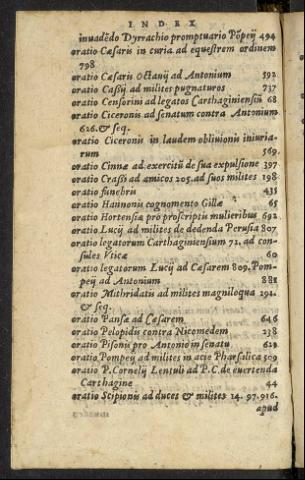 INDEX
inuadẽdo Dyrrachio promptuario Põpeij 494
oratio Cæsaris in curia ad equestrem ordinem
798
oratio Cæsaris Octauij ad Antonium 592
oratio Cassij ad milites pugnaturos 737
oratio Censorini ad legatos Carthaginiensiũ 68
oratio Ciceronis ad senatum contra Antonium
626. & seq.
oratio Ciceronis in laudem obliuionis iniuria-
rum 569.
oratio Cinnæ ad exercitũ de sua expulsione 397
oratio Crassi ad amicos 205. ad suos milites 198
oratio funebris 435
oratio Hannonis cognomento Gillæ 65
oratio Hortensiæ pro proscriptis mulieribus 692
oratio Lucij ad milites de dedenda Perusia 807
oratio legatorum Carthaginiensium 72. ad con-
sules Vticæ 60
oratio legatorum Lucij ad Cæsarem 809. Pom-
peij ad Antonium 881
oratio Mithridatis ad milites magniloqua 292.
& seq.
oratio Pansæ ad Cæsarem 646
oratio Pelopidis contra Nicomedem 238
oratio Pisonis pro Antonio in senatu 629
oratio Pompeij ad milites in acie Pharsalica 509
oratio P. Cornelij Lentuli ad P.C. de euertenda
Carthagine 44
oratio Scipionis ad duces & milites 14. 97. 916.
apud